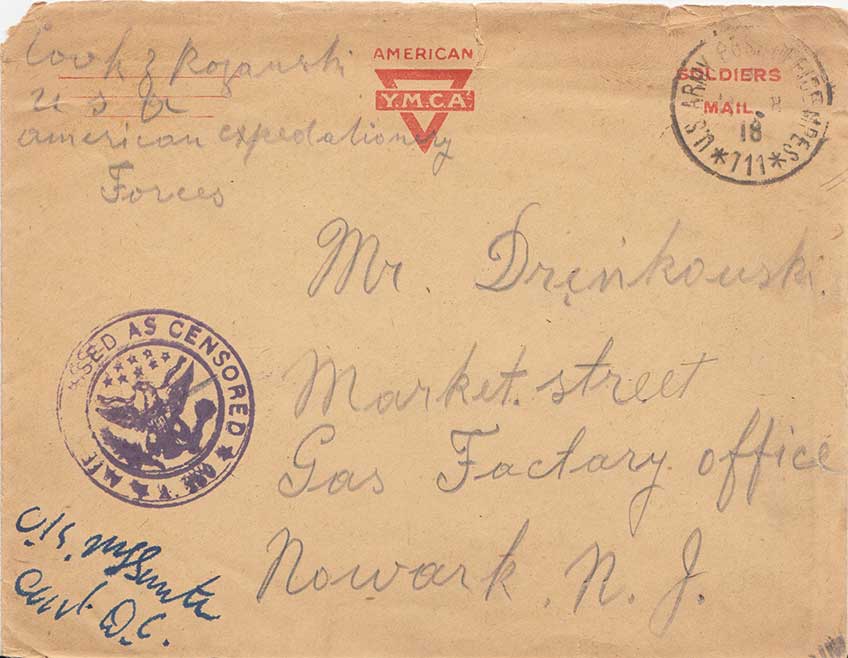 Cook Z Roganski
U S A
American expedationery
Forces
AMERICAN
Y.M.C.A
SOLDIERS
MAIL.
U.S. ARMY POST OFFICE MPES
18
*711*
Mr. Drenkouski.
Market. street
Gas Factary office
Nowark. N. J.
SSED AS CENSORED
A.E.F.
O.K.